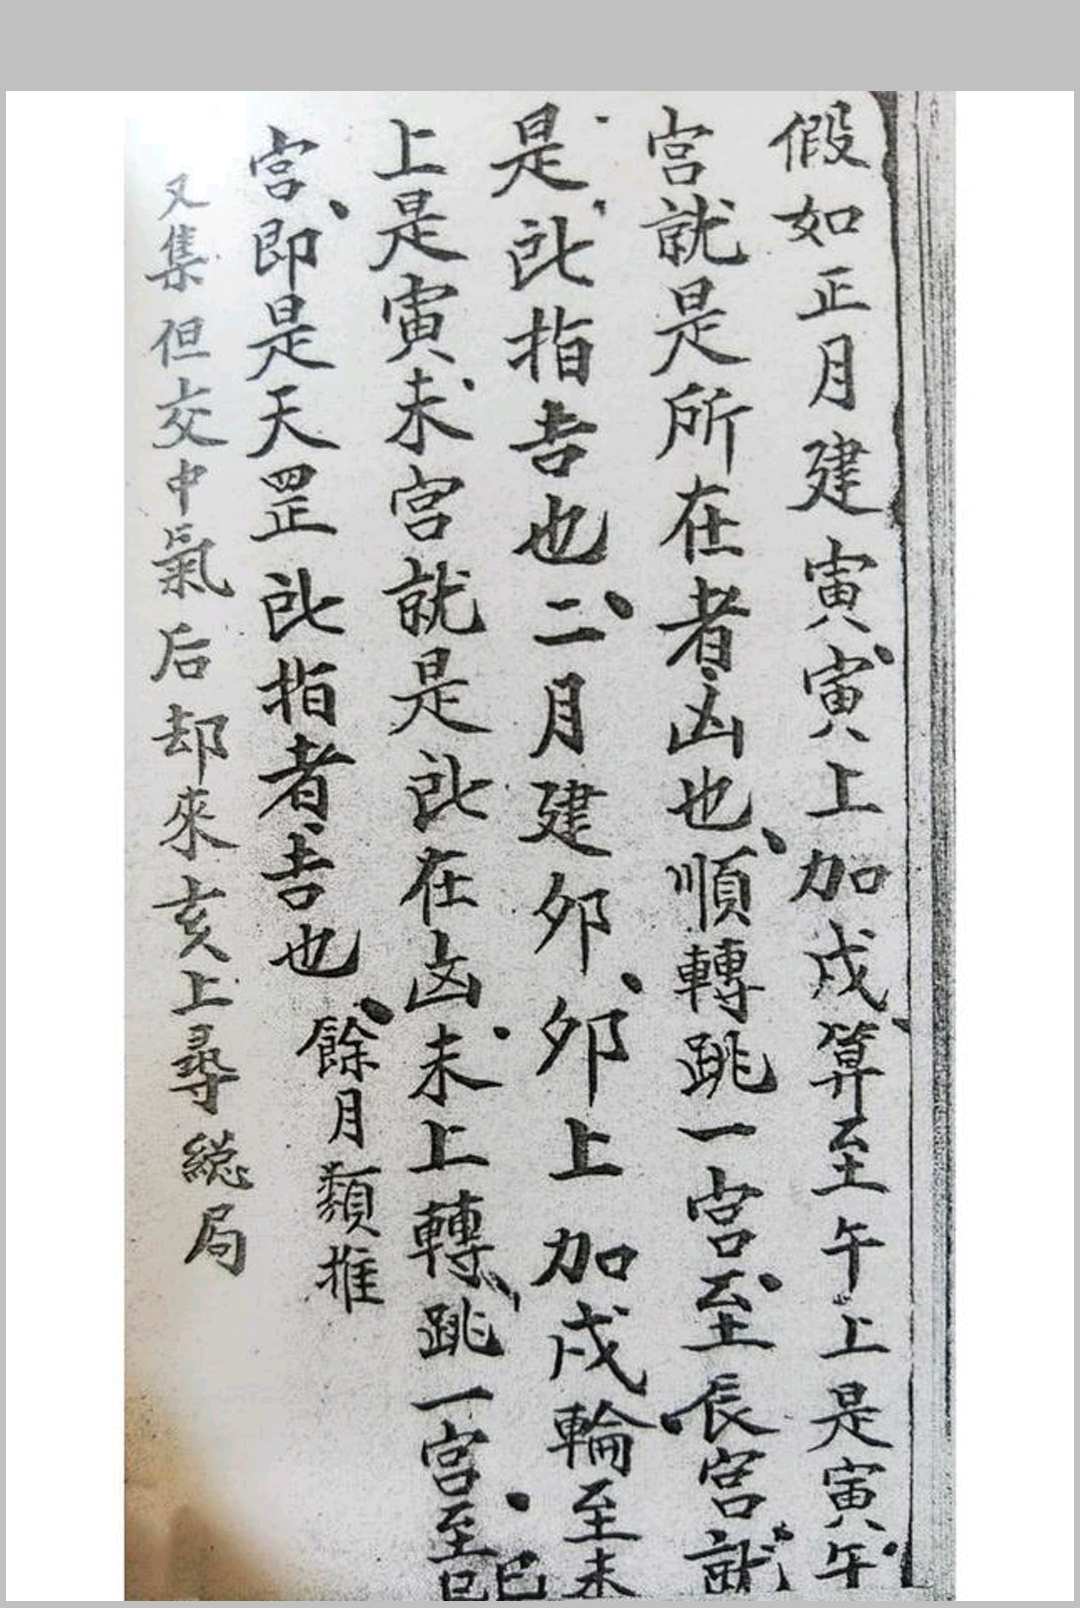 假如正月建寅寅上加戌算至午上是寅午
宮就是所在者凶也順轉跳一宮至辰宮就
是是所指吉也二月建卯卯上加戌輪至未
上是寅未宮就是所在凶未上轉跳一宮至巳
宮即是天罡所指者吉也餘月類推
又集但交中氣后却來亥上尋總局